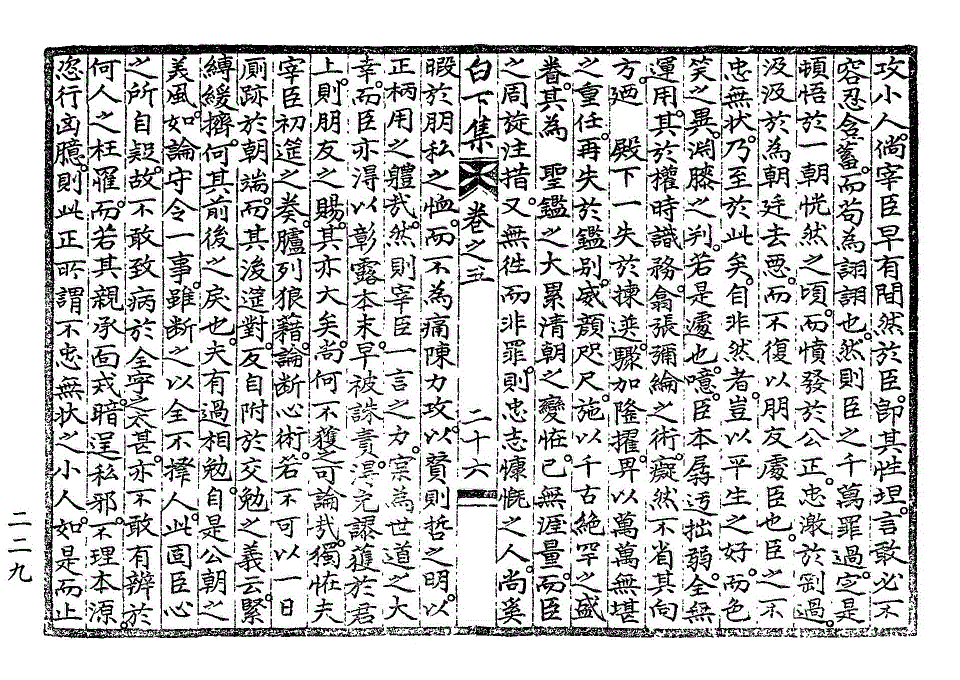 攻小人。倘宰臣早有間然於臣。卽其性坦。言敢必不
容忍含蓄。而苟爲詡詡也。然則臣之千萬罪過。定是
頓悟於一朝恍然之頃。而憤發於公正。忠激於剴過。
汲汲於爲朝廷去惡。而不復以朋友處臣也。臣之不
忠無狀。乃至於此矣。自非然者。豈以平生之好。而色
笑之異。淵膝之判。若是遽也。噫。臣本孱迃拙弱。全無
運用。其於權時識務。翕張彌綸之術。癡然不省其向
方。廼　殿下一失於揀選。驟加隆擢。畀以萬萬無堪
之重任。再失於鑑別。威顔咫尺。施以千古絶罕之盛
眷。其爲　聖鑑之大累。淸朝之變恠。已無涯量。而臣
之周旋注措。又無徃而非罪。則忠志慷慨之人。尙奚
白下集　卷之三　二十六
暇於朋私之恤。而不爲痛陳力攻。以贊則哲之明。以
正柄用之軆哉。然則宰臣一言之力。宲爲世道之大
幸。而臣亦淂以彰露本末。早被誅責。淂免謬獲於君
上。則朋友之賜。其亦大矣。尙何不獲之可論哉。獨恠夫
宰臣初筵之奏。臚列狼藉。論斷心術。若不可以一日
厠跡於朝端。而其後筵對。反自附於交勉之義云。緊
縛緩擠。何其前後之戾也。夫有過相勉。自是公朝之
義風。如論守令一事。雖斷之以全不擇人。此固臣心
之所自疑。故不敢致病於全字之太甚。亦不敢有辨於
何人之枉罹。而若其親承面戒。暗逞私邪。不理本源。
恣行凾臆。則此正所謂不忠無狀之小人。如是而止
二二九